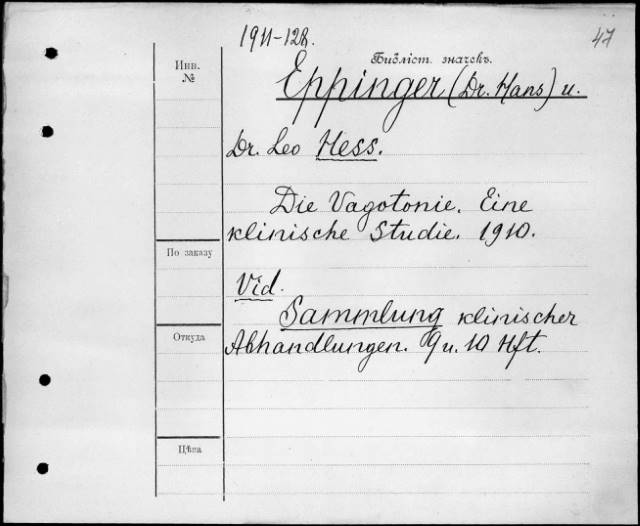 1911-128.
47
Инв.
№
Библіот. значекъ.
Eppinger (Dr. Hans) u.
Dr. Leo Hess.
Die Vagotonie. Eine
klinische Studie. 1910.
По заказу
Vid.
Sammlung klinischer
Откуда
Abhandlungen. 9 u. 10 Hft.
Цѣна